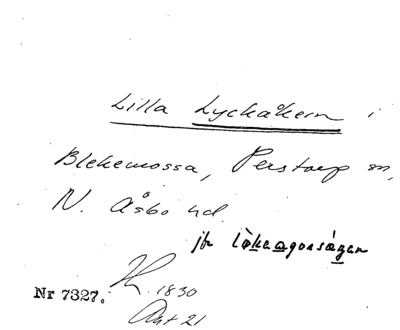 Lilla Lyckåkern i
Blekemossa, Perstorp sn,
N. Åsbo hd.
jfr
Nr 7327.
1830
Akt 21